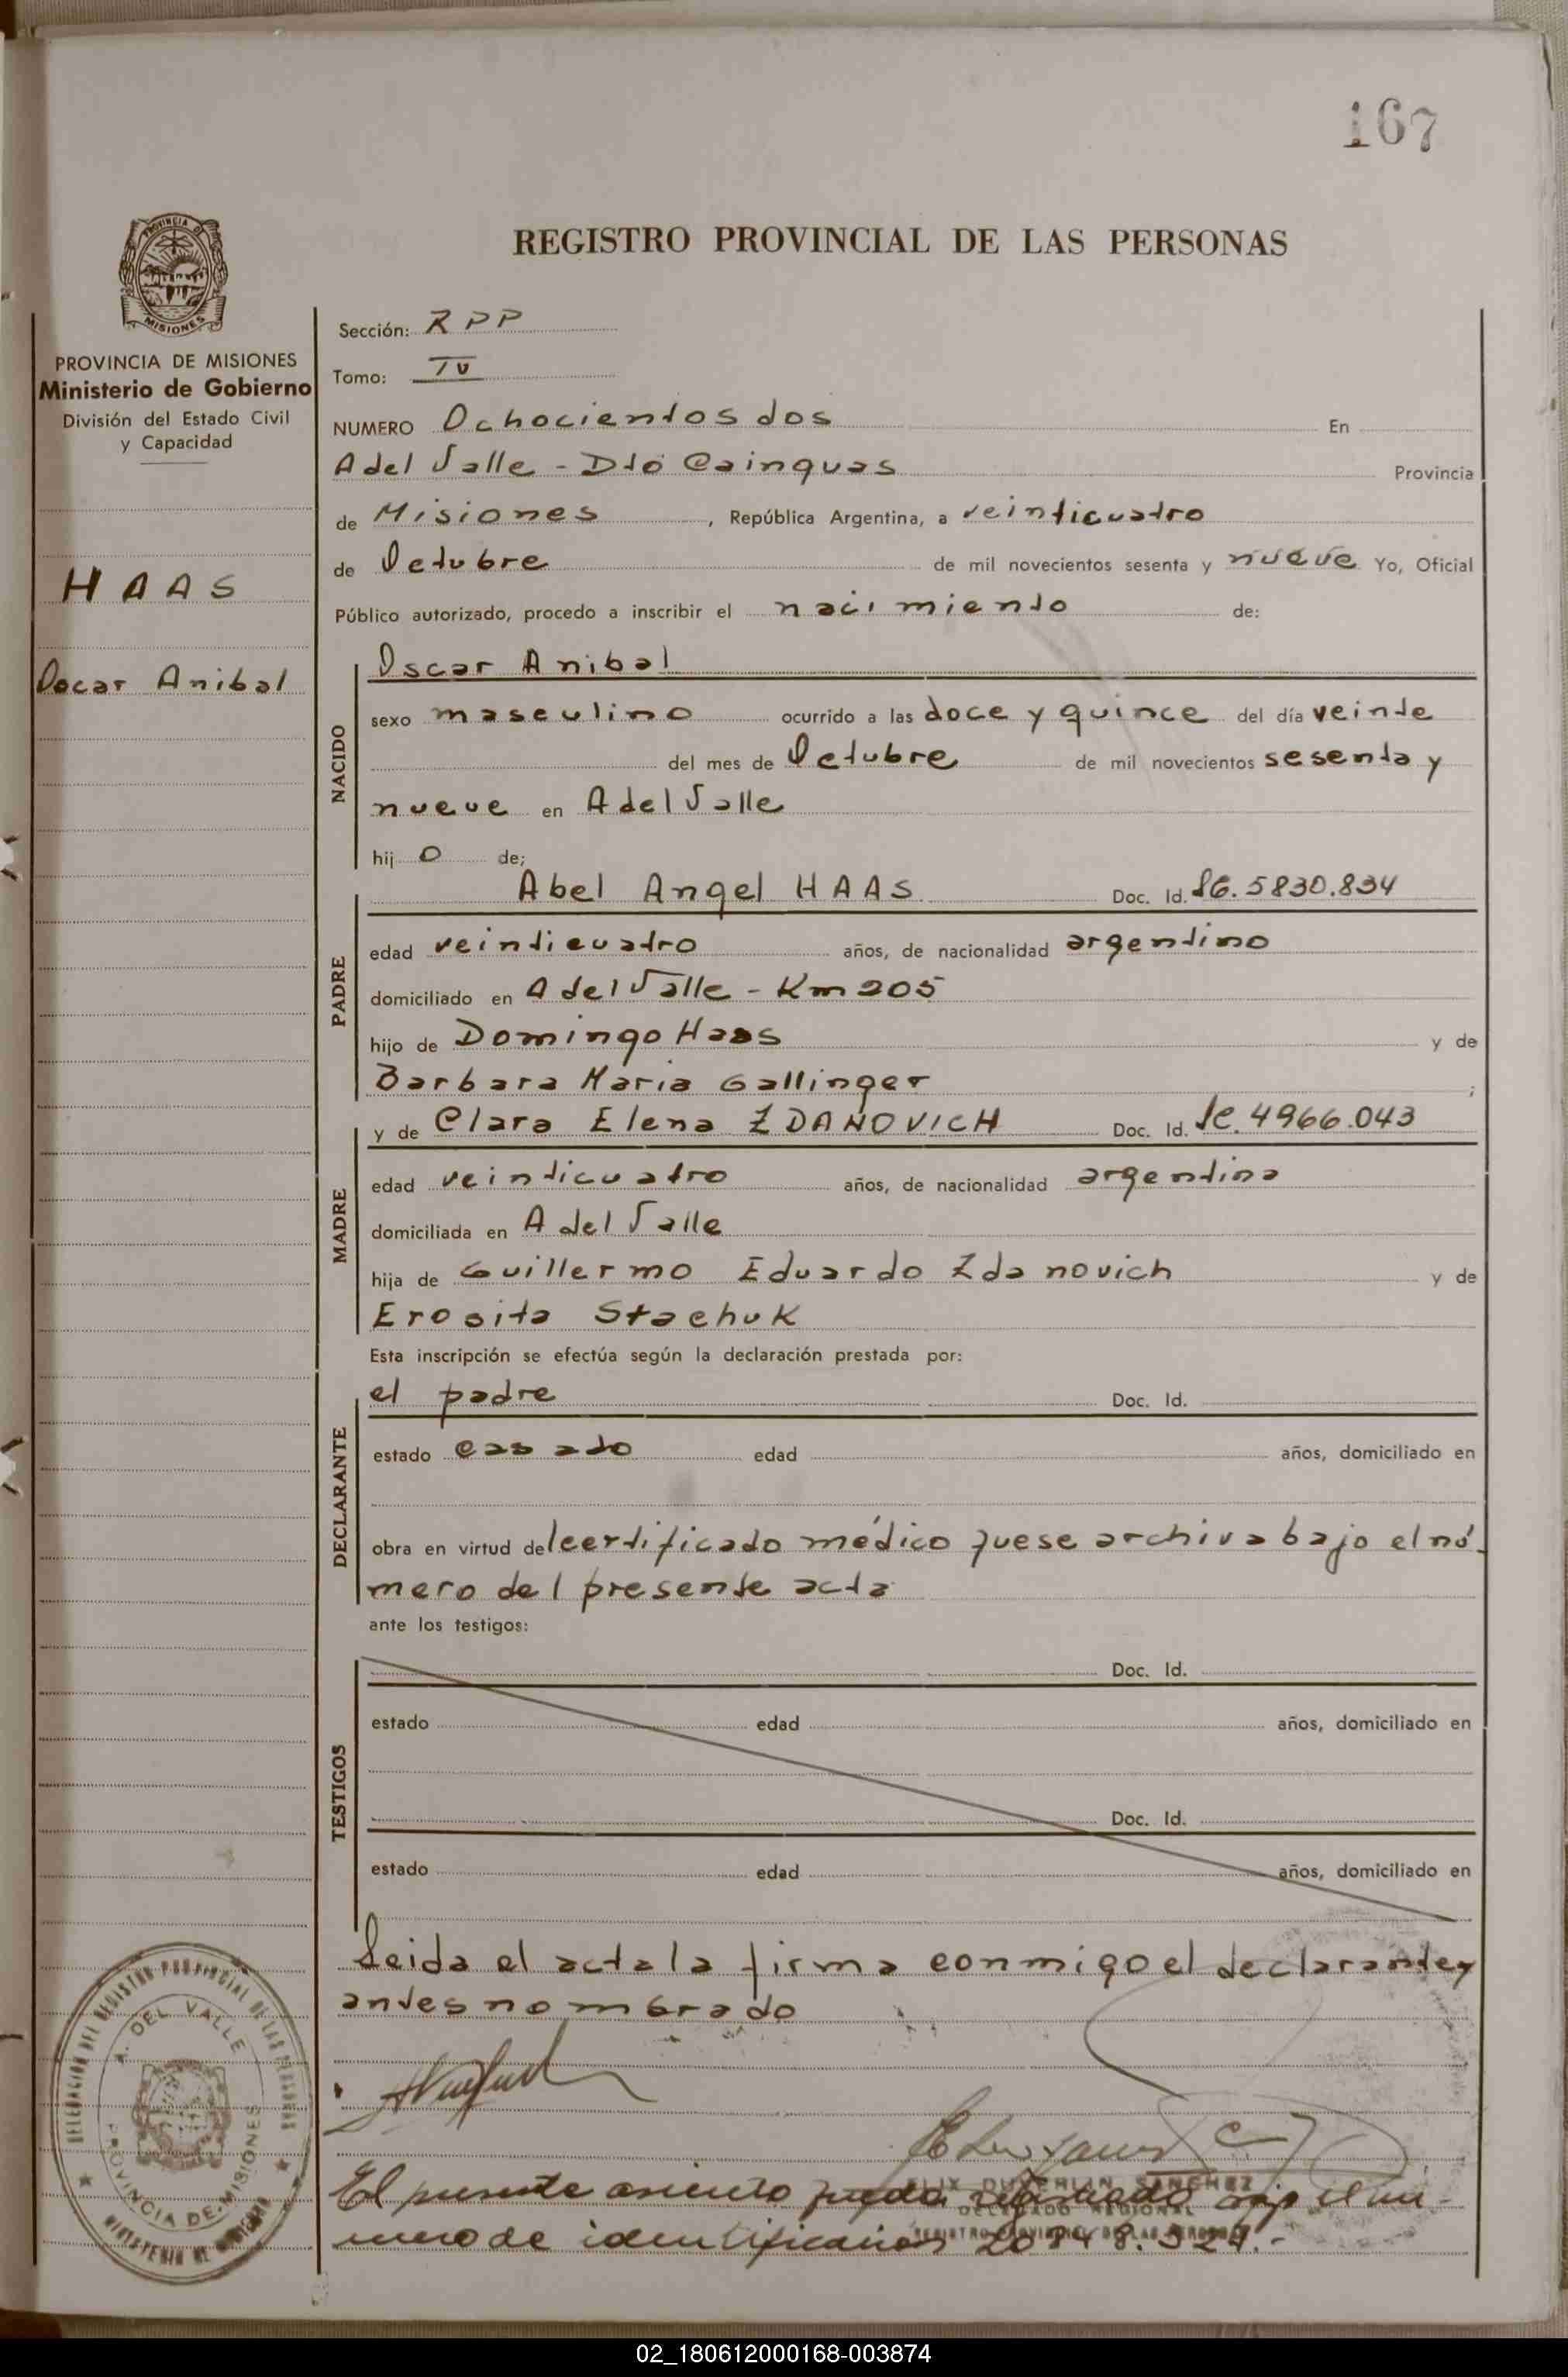 167
PROVINCIA DE
MISIONES
REGISTRO PROVINCIAL DE LAS PERSONAS
PROVINCIA DE MISIONES
Ministerio de Gobierno
División del Estado Civil
y Capacidad
HAAS
Oscar Anibal
Sección: RPP
Tomo: IV
NUMERO Ochocientos dos En
A del Valle - Dto Cainguas Provincia
de Misiones , República Argentina, a veinticuatro
de Octubre de mil novecientos sesenta y nueve Yo, Oficial
Público autorizado, procedo a inscribir el nacimiento de:
NACIDO
Oscar Anibal
sexo masculino ocurrido a las doce y quince del día veinte
del mes de Octubre de mil novecientos sesenta y
nueve en A del Valle
hij o de;
PADRE
Abel Angel HAAS Doc. Id. 5830.834
edad veinticuatro años, de nacionalidad argentino
domiciliado en A del Valle - Km 205
hijo de Domingo Haas y de
Barbara Maria Gallinger ;
MADRE
y de Clara Elena ZDANOVICH Doc. Id. 4966.043
edad veinticuatro años, de nacionalidad argentina
domiciliada en A del Valle
hija de Guillermo Eduardo Zdanovich y de
Erosita Stachuk
Esta inscripción se efectúa según la declaración prestada por:
DECLARANTE
el padre Doc. Id.
estado casado edad años, domiciliado en
obra en virtud del certificado médico que se archiva bajo el nú-
mero del presente acta
ante los testigos:
TESTIGOS
Doc. Id.
estado edad años, domiciliado en
Doc. Id.
estado edad años, domiciliado en
Leida el acta la firma conmigo el declarante y
antes nombrado
DELEGACION DEL REGISTRO PROVINCIAL DE LAS PERSONAS
A. DEL VALLE
PROVINCIA DE MISIONES
MINISTERIO DE GOBIERNO
SANCHEZ
DELEGADO REGIONAL
REGISTRO PROVINCIAL DE LAS PERSONAS
El presente asiento queda bajo el nú-
mero de identificación
02_180612000168-003874